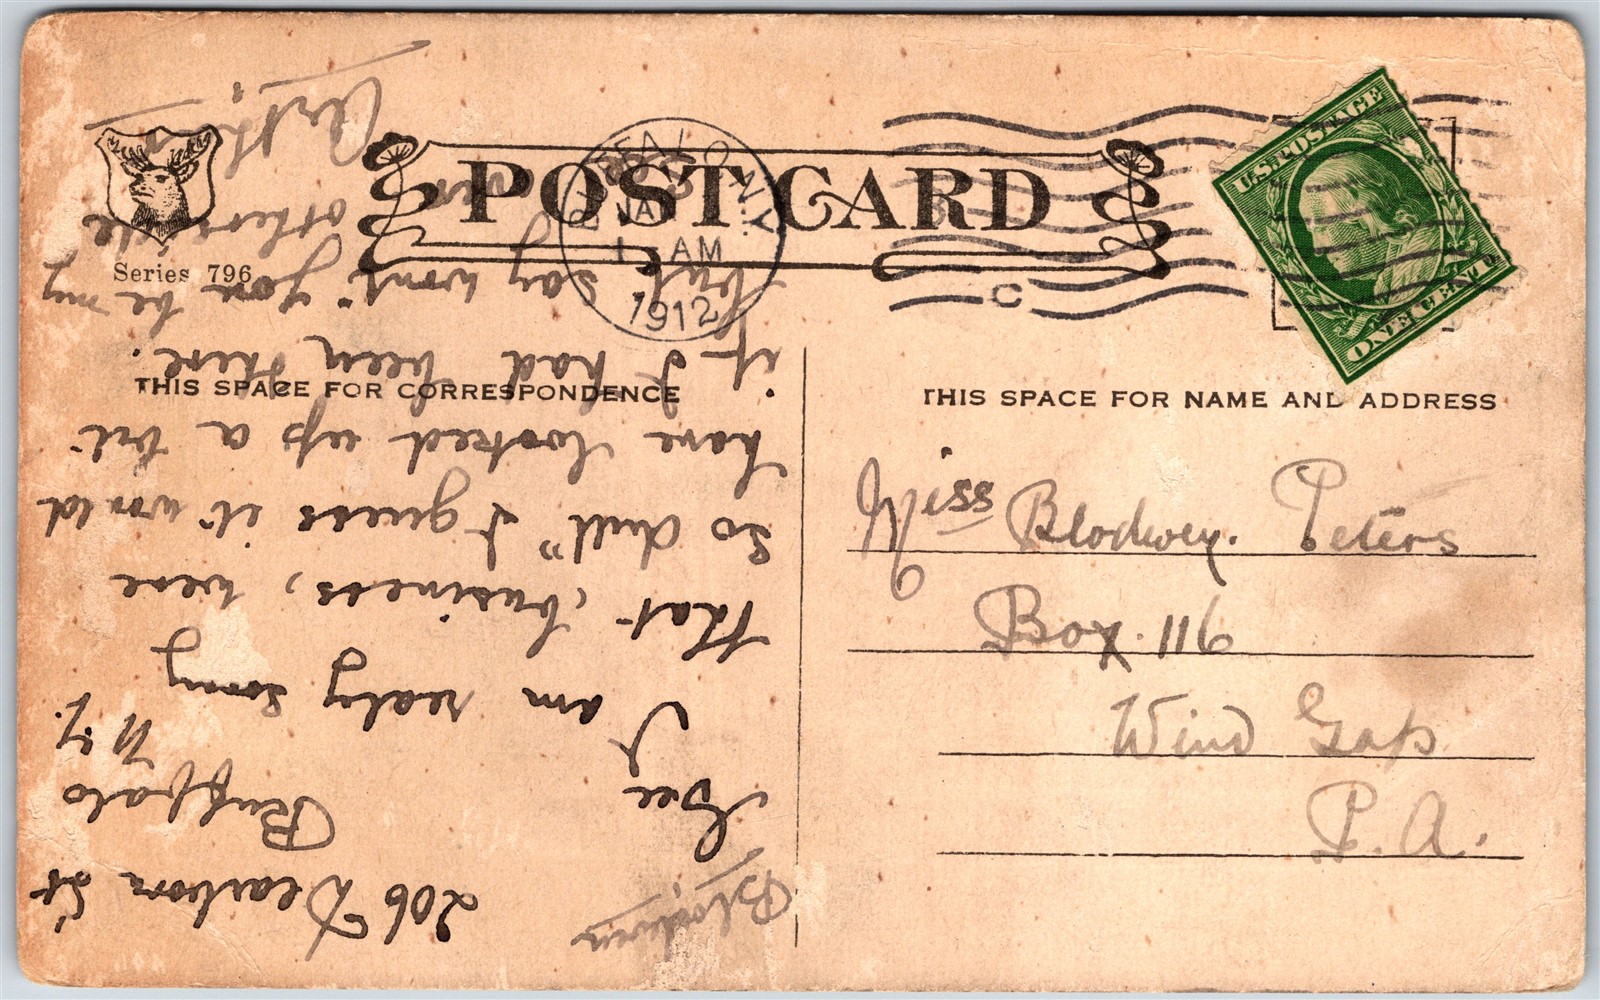 POST CARD
Series 796
BUFFALO, N.Y.
JAN
1 AM
1912
C
U.S. POSTAGE
ONE CENT
THIS SPACE FOR CORRESPONDENCE
THIS SPACE FOR NAME AND ADDRESS
Miss Blodwen. Peters
Box. 116
Wind Gap
P.A.
206 Dearborn St
Buffalo
N.Y.
Blodwen
Gee
I am realy sorry
that business, were
so dull" I guess it would
have looked up a bit
if I had been there.
but say wont you be my
otherside
Arthur